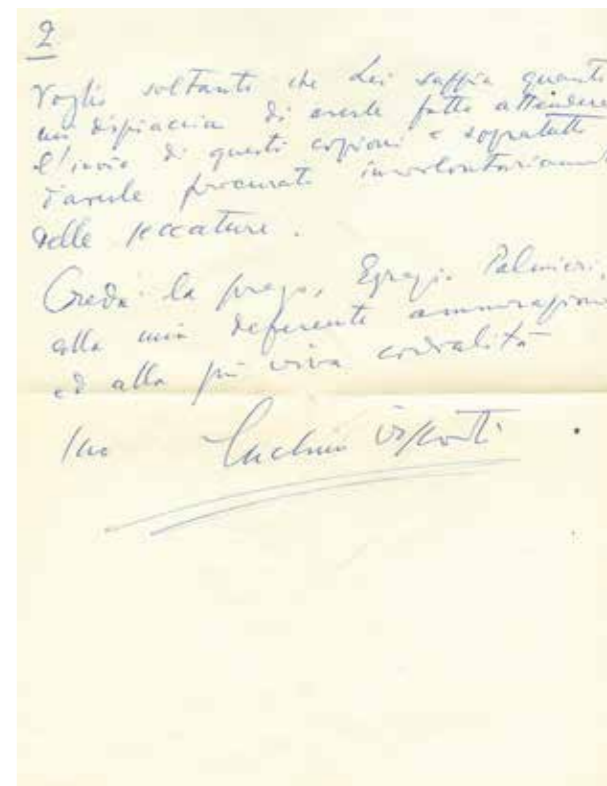 2
Voglio soltanto che Lei sappia quanto
mi dispiaccia di averle fatto attendere
l'invio di questi copioni e sopratutto
d'averle procurato involontariamente
delle seccature.
Creda la prego, Egregio Palmieri,
alla mia deferente ammirazione
ed alla più viva cordialità
Suo Luchino Visconti